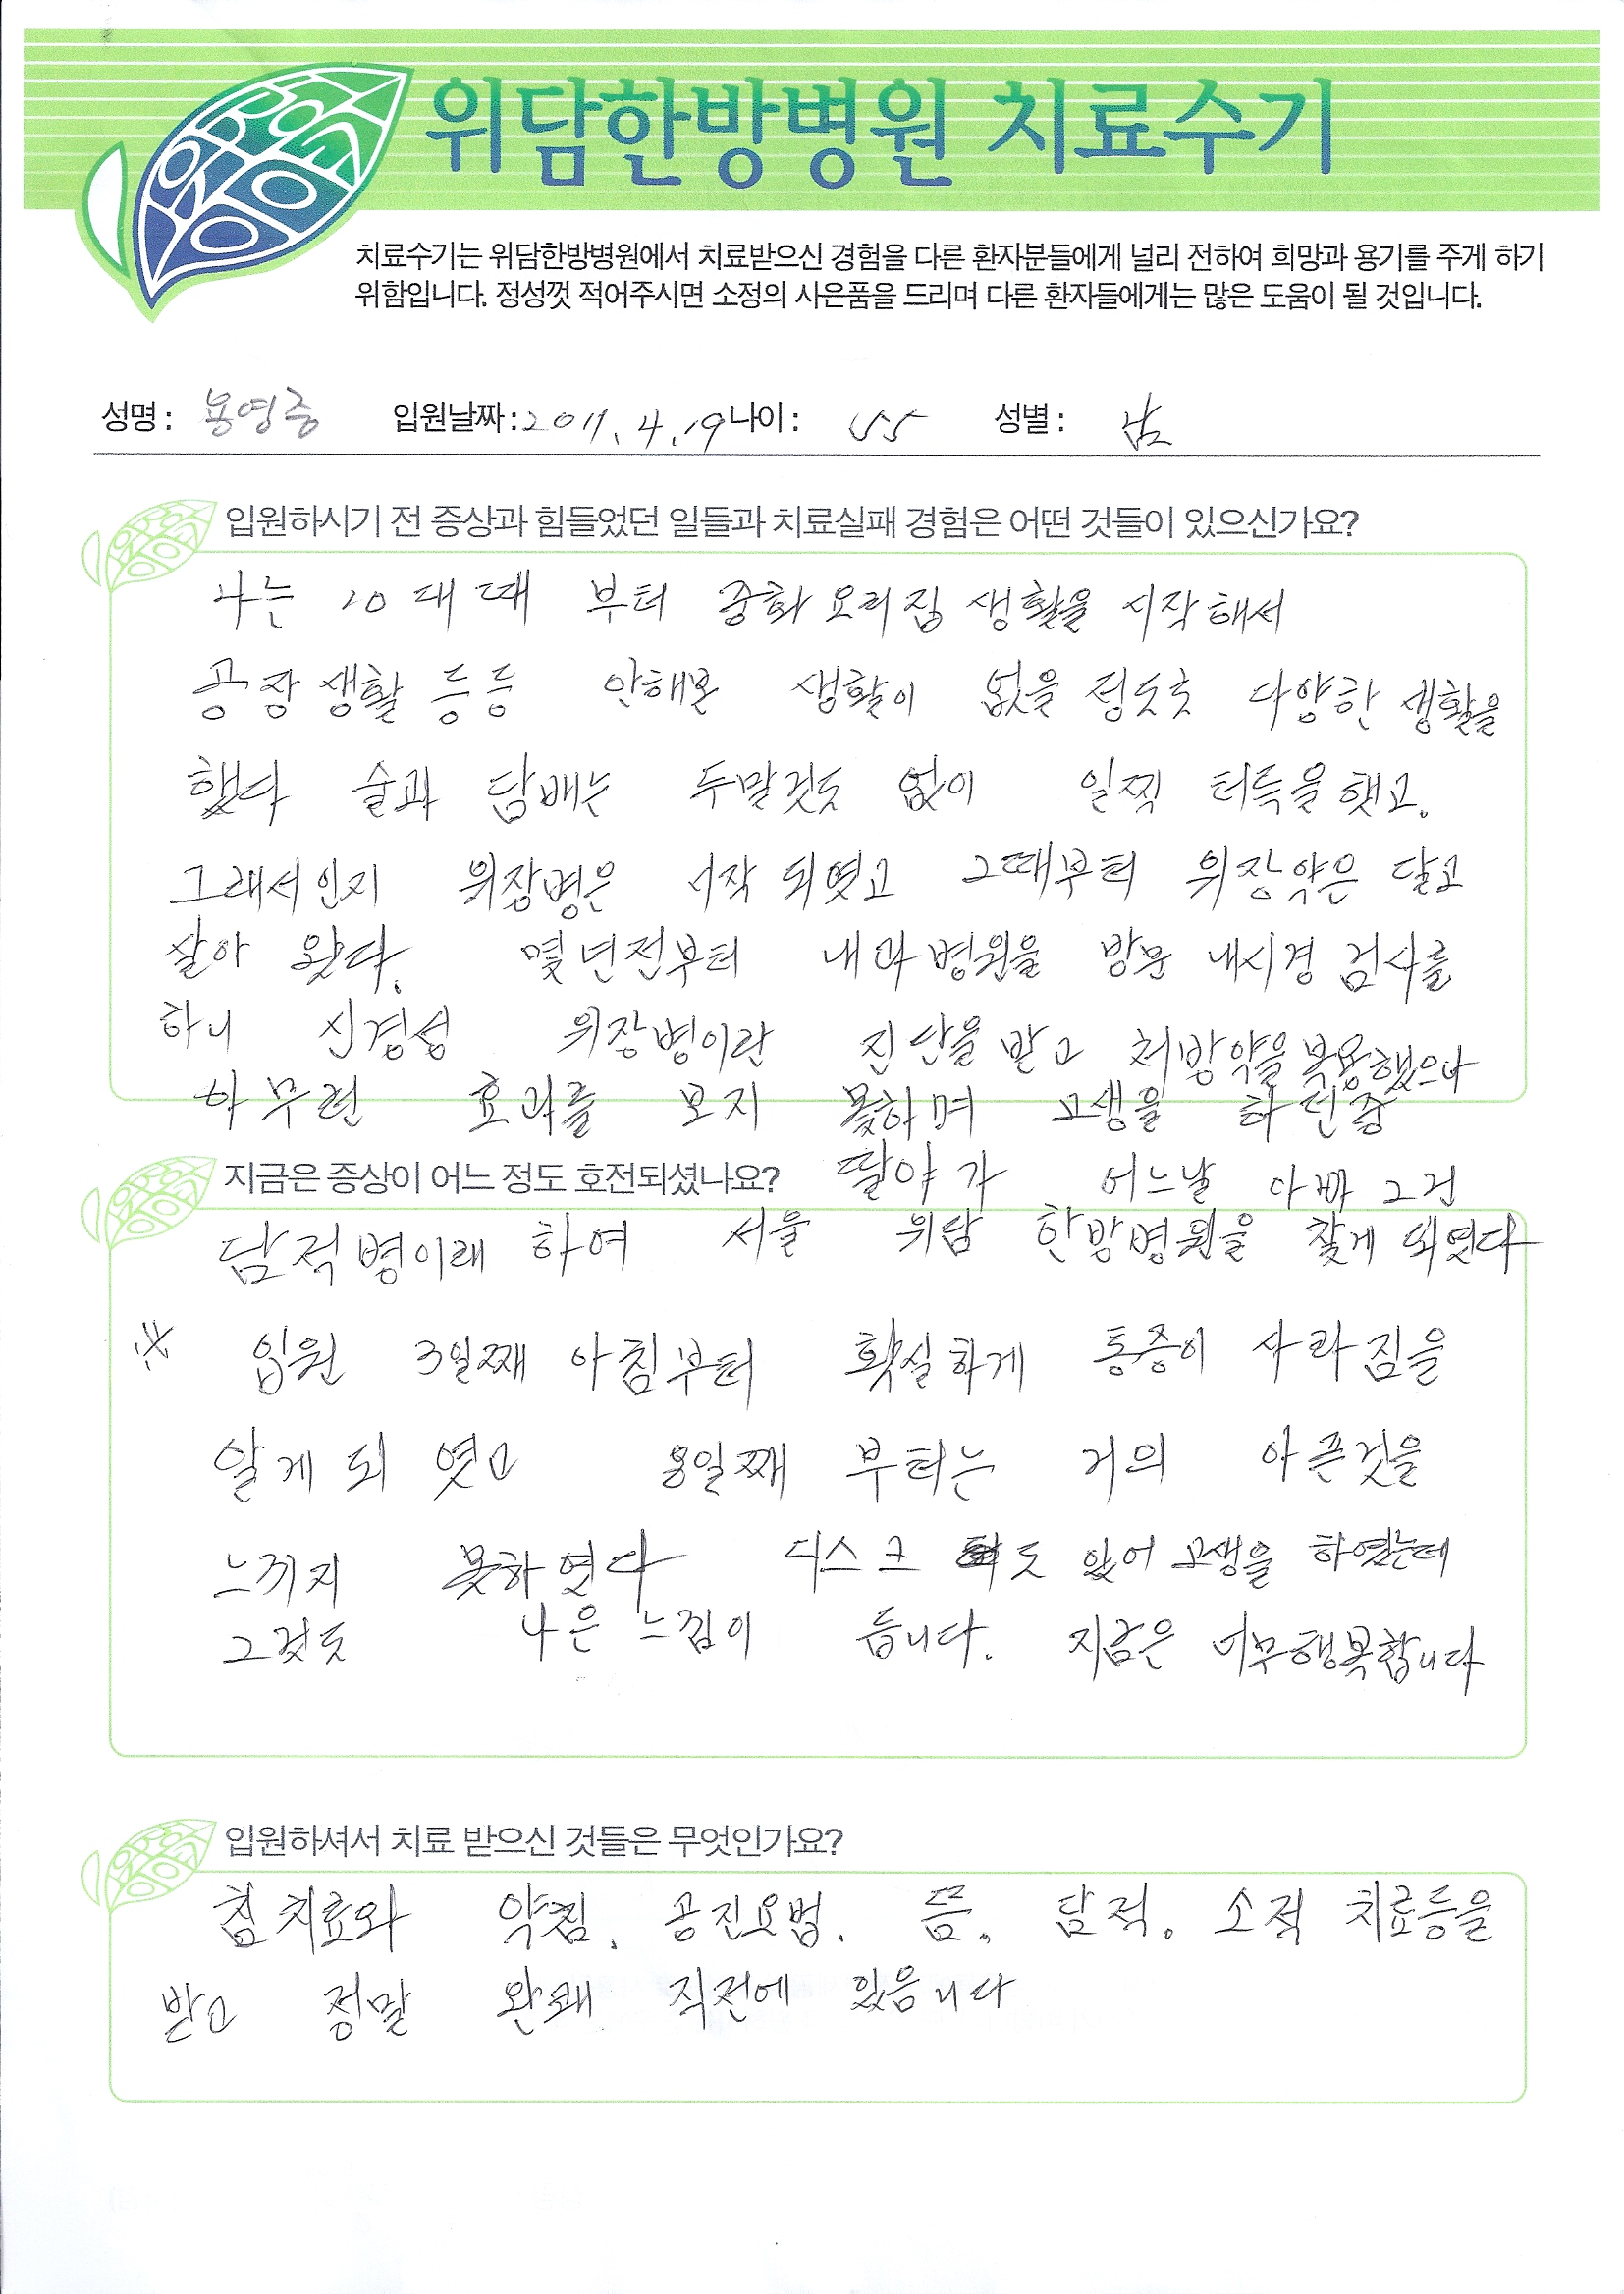 위담한방병원 치료수기
치료수기는 위담한방병원에서 치료받으신 경험을 다른 환자분들에게 널리 전하여 희망과 용기를 주게 하기
위함입니다. 정성껏 적어주시면 소정의 사은품을 드리며 다른 환자들에게는 많은 도움이 될 것입니다.
성명 : 입원날짜 : 2011. 4. 19 나이 : 55 성별 : 남
입원하시기 전 증상과 힘들었던 일들과 치료실패 경험은 어떤 것들이 있으신가요?
나는 10대때 부터 중화요리집 생활을 시작해서
공장생활 등등 안해본 생활이 없을 정도로 다양한 생활을
했다 술과 담배는 두말것도 없이 일찍 터득을했고.
그래서인지 위장병은 시작 되엿고 그때부터 위장약은 달고
살아 왔다. 몇년전부터 내과병원을 방문 내시경 검사를
하니 신경성 위장병이란 진단을 받고 처방약을복용했으나
아무런 효과를 보지 못하며 고생을 하던중
지금은 증상이 어느 정도 호전되셨나요? 딸아가 어느날 아빠 그건
담적병이래 하여 서울 위담 한방병원을 찾게 되엿다
※ 입원 3일째 아침부터 확실하게 통증이 사라짐을
알게되엿고 8일째 부터는 거의 아픈것을
느끼지 못하엿다 디스크 도 있어 고생을 하였는데
그것도 나은 느낌이 듭니다. 지금은 너무행복합니다
입원하셔서 치료 받으신 것들은 무엇인가요?
침치료와 약침. 공진요법. 뜸. 담적. 소적 치료등을
받고 정말 완쾌 직전에 있음니다